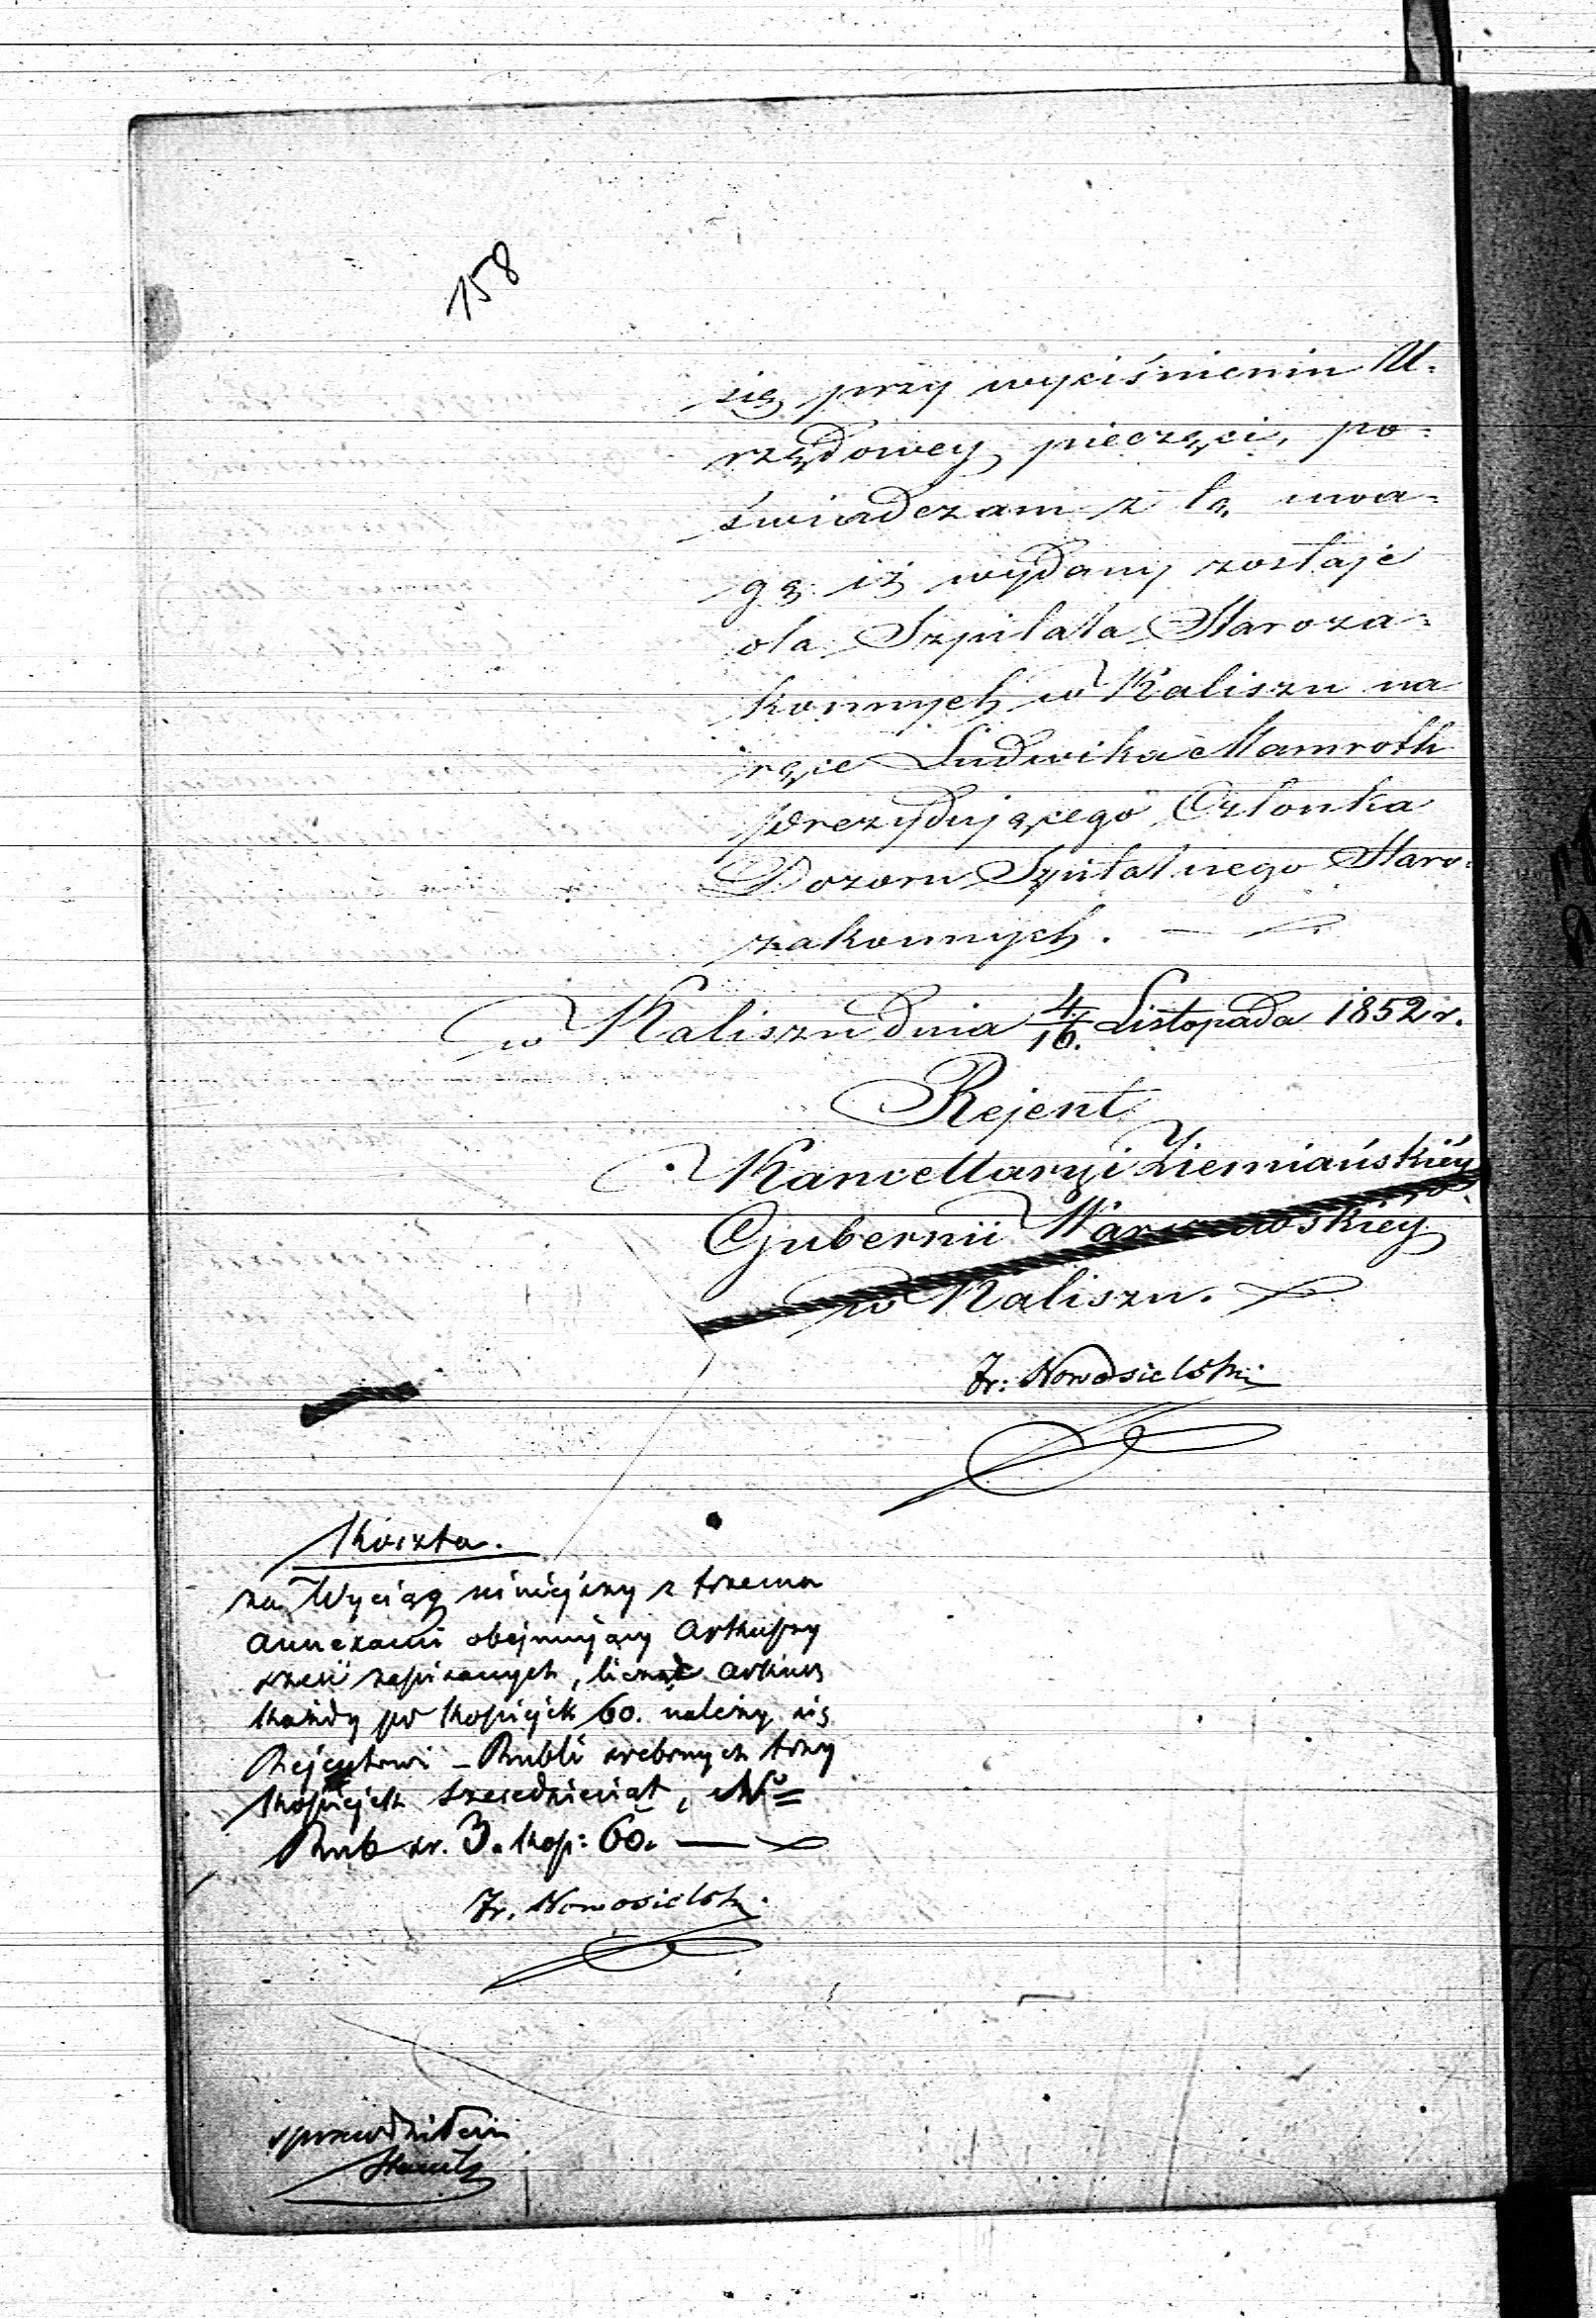 158
się przy wyciśnieniu U=
rzędowey pieczęci, po=
świadczam z tą uwa=
gą iż wydany zostaje
dla Szpitala Staroza=
konnych w Kaliszu na
ręce Ludwika Mamroth
prezydującego Członka
Dozoru Szpitalnego Staro=
zakonnych.
w Kaliszu dnia 4/16. Listopada 1852 r.
Rejent
Kancellaryi Ziemiańskiéy
Gubernii Warszawskiéy
w Kaliszu.
Fr: Nowosielski
Koszta.
za Wyciąg niniejszy z trzema
annexami obejmujący Arkuszy
sześć zapisanych, licząc arkusz
każdy po kopiejek 60. należy się
Rejentowi – Rubli srebrnych trzy
kopiejek sześćdziesiąt, No=
Rub sr. 3. kop: 60.
Fr. Nowosielski.
sprawdziłem